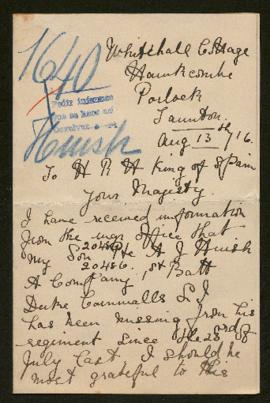 1640
Pedir informes
que se hará al
devolver
Huish
Whitehall Cottage
Hawkcombe
Porlock
Taunton
Aug 13th 16.
To H R H King of Spain
Your Magesty.
I have received information
from the war office that
my Son 20486 Pte A J Huish
20486. 1st Batt
A Company
Duke Cornwalls L I
has been missing from his
regiment since the 23rd of
July last, I should be
most grateful to